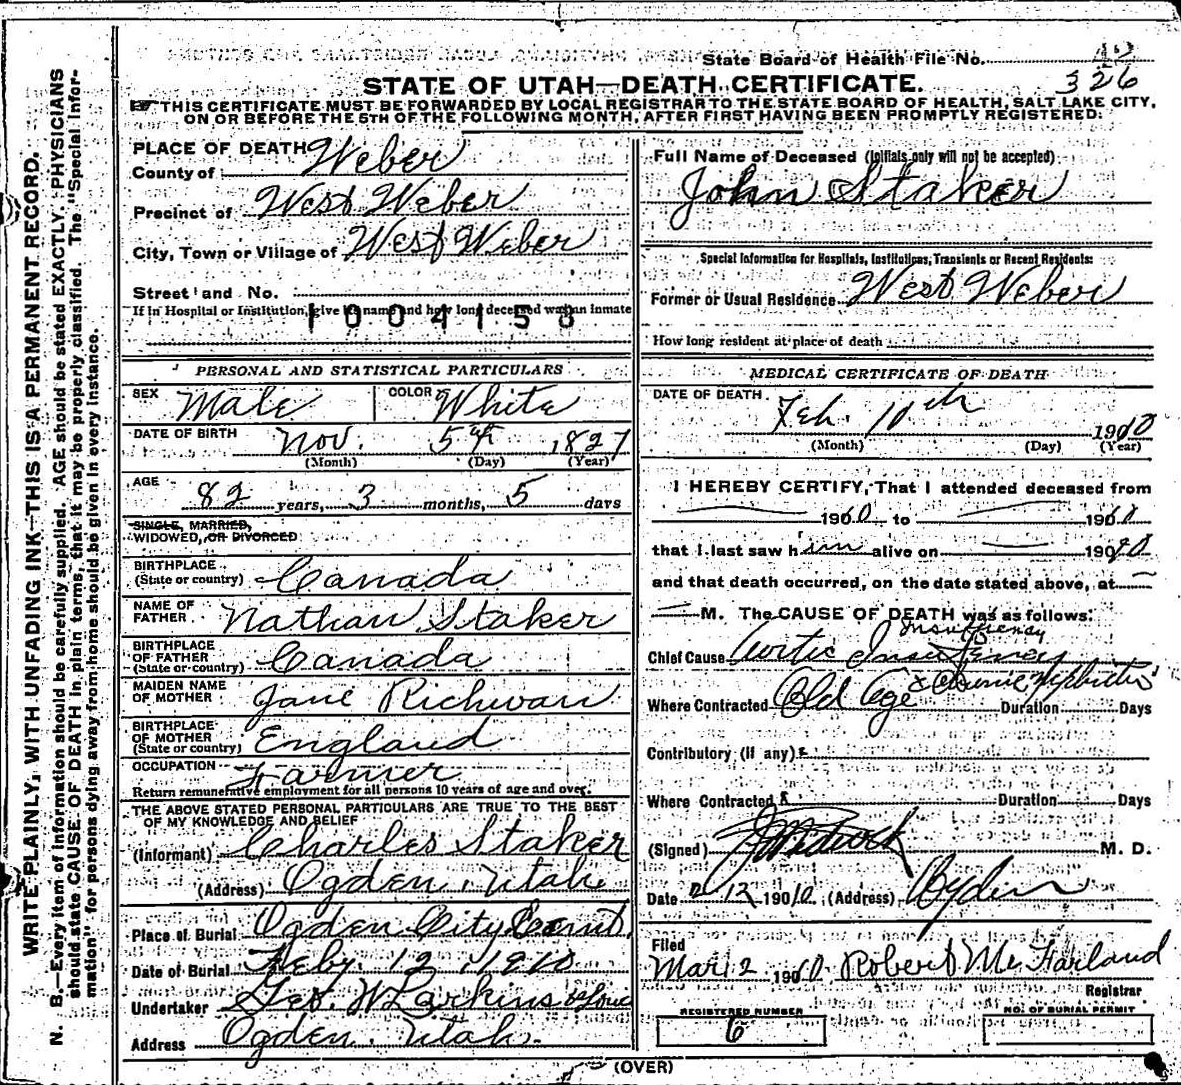 State Board of Health File No. 42
326
STATE OF UTAH—DEATH CERTIFICATE.
THIS CERTIFICATE MUST BE FORWARDED BY LOCAL REGISTRAR TO THE STATE BOARD OF HEALTH, SALT LAKE CITY,
ON OR BEFORE THE 5TH OF THE FOLLOWING MONTH, AFTER FIRST HAVING BEEN PROMPTLY REGISTERED:
WRITE PLAINLY, WITH UNFADING INK—THIS IS A PERMANENT RECORD.
N. B.—Every item of information should be carefully supplied. AGE should be stated EXACTLY. PHYSICIANS
should state CAUSE OF DEATH in plain terms, that it may be properly classified. The "Special Infor-
mation" for persons dying away from home should be given in every instance.
PLACE OF DEATH
County of Weber
Precinct of West Weber
City, Town or Village of West Weber
Street and No.
If in Hospital or Institution, give its name and how long deceased was an inmate
1004158
PERSONAL AND STATISTICAL PARTICULARS
SEX Male COLOR White
DATE OF BIRTH Nov. 5th 1827
(Month) (Day) (Year)
AGE 82 years, 3 months, 5 days
SINGLE, MARRIED,
WIDOWED, OR DIVORCED
BIRTHPLACE
(State or country) Canada
NAME OF
FATHER Nathan Staker
BIRTHPLACE
OF FATHER
(State or country) Canada
MAIDEN NAME
OF MOTHER Jane Richman
BIRTHPLACE
OF MOTHER
(State or country) England
OCCUPATION Farmer
Return remunerative employment for all persons 10 years of age and over.
THE ABOVE STATED PERSONAL PARTICULARS ARE TRUE TO THE BEST
OF MY KNOWLEDGE AND BELIEF
(Informant) Charles Staker
(Address) Ogden, Utah
Place of Burial Ogden City Cemt.
Date of Burial Feby. 12, 1910
Undertaker Geo. W Larkins & Sons
Address Ogden, Utah.
Full Name of Deceased (Initials only will not be accepted)
John Staker
Special Information for Hospitals, Institutions, Transients or Recent Residents:
Former or Usual Residence West Weber
How long resident at place of death
MEDICAL CERTIFICATE OF DEATH
DATE OF DEATH. Feb. 10th 1910
(Month) (Day) (Year)
I HEREBY CERTIFY, That I attended deceased from
1910 to 1910
that I last saw him alive on 1910
and that death occurred, on the date stated above, at
M. The CAUSE OF DEATH was as follows:
Insufficiency
Chief Cause Aortic
Where Contracted Old Age & Chronic Nephritis Duration Days
Contributory (if any)
Where Contracted Duration Days
(Signed) M. D.
Date 2/12 1910 (Address) Ogden
Filed
Mar 2 1910 Robert McFarland
Registrar
REGISTERED NUMBER
6
NO. OF BURIAL PERMIT
(OVER)